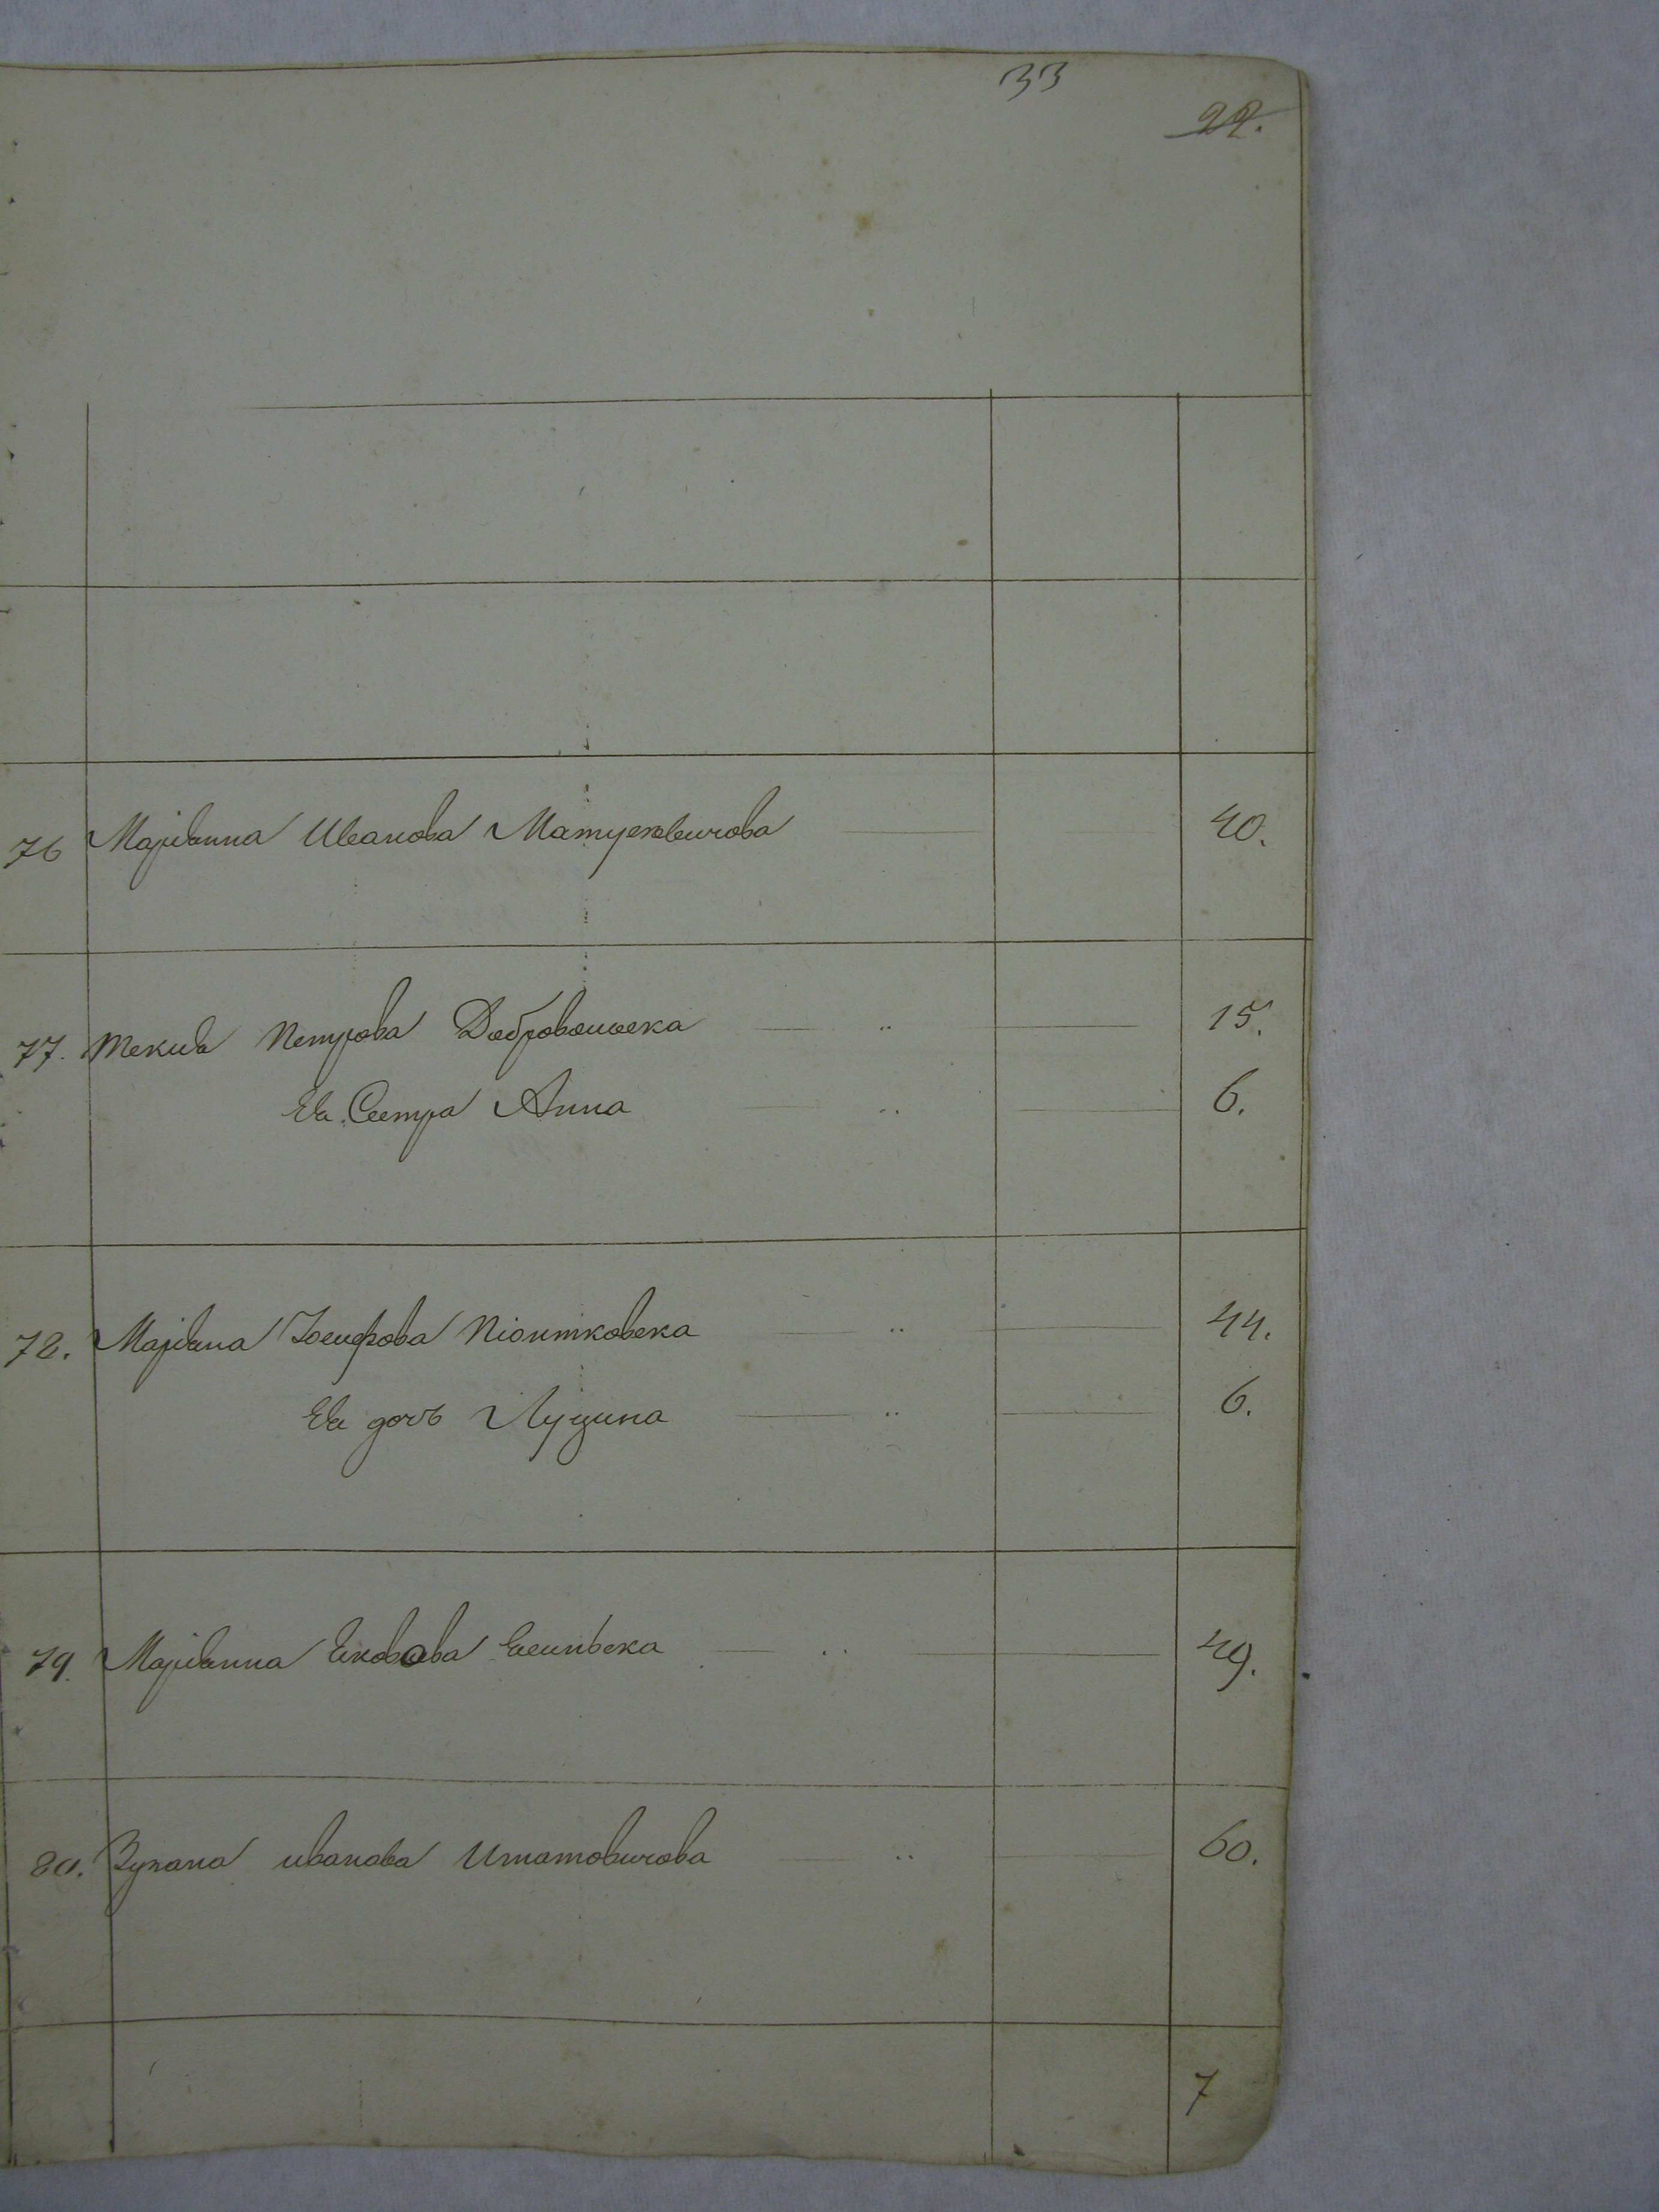 33
22.
76 Марiанна Иванова Матусевичова 40.
77. Текля Петрова Добровольска 15.
Ея Сестра Анна 6.
78. Марiана Іосифова Піонтковска 44.
Ея дочь Луцина 6.
79. Марiанна 49.
80. Зузана иванова 60.
7